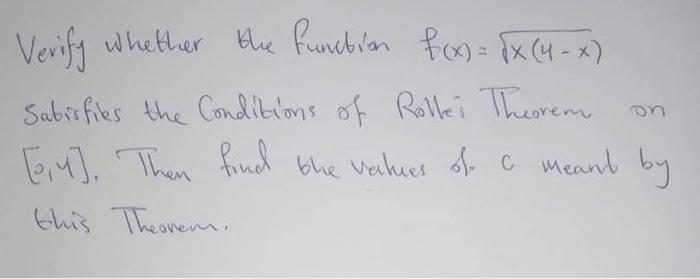 Verify whether the function f(x) = √x(4-x)
Satisfies the Conditions of Rolle's Theorem on
[0,4]. Then find the values of c meant by
this Theorem.